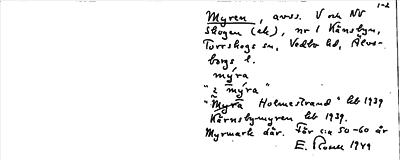 1-2
Myren, avss. V och NV
Skogen (ek), nr 1 Känsbyn,
Torrskogs sn, Vedbo hd, Älvs-
borgs l.
myra
"2 myra"
"Myra Holmestrand" lb 1939
Kärnsbymyren lb 1939.
Myrmark där. För c:a 50-60 år
E. 1949